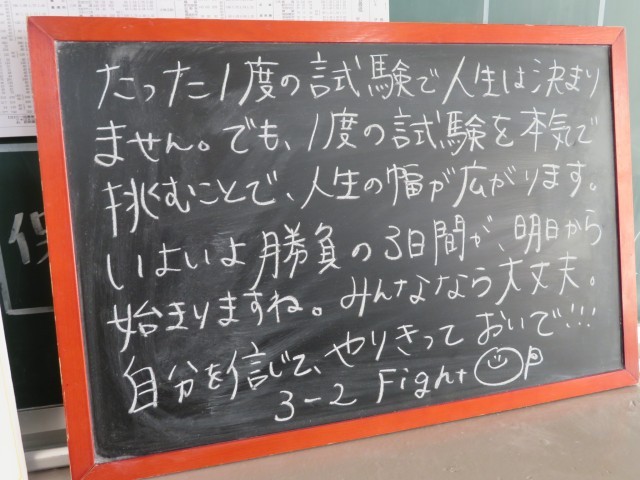 たった1度の試験で人生は決まり
ません。でも、1度の試験を本気で
挑むことで、人生の幅が広がります。
いよいよ勝負の3日間が、明日から
始まりますね。みんななら大丈夫。
自分を信じて、やりきっておいで!!!
3-2 Fight